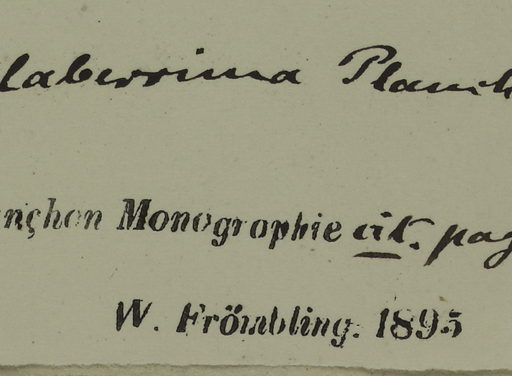 laberrima Planch
nçhon Monographie cit. pag
W. Frömbling. 1895